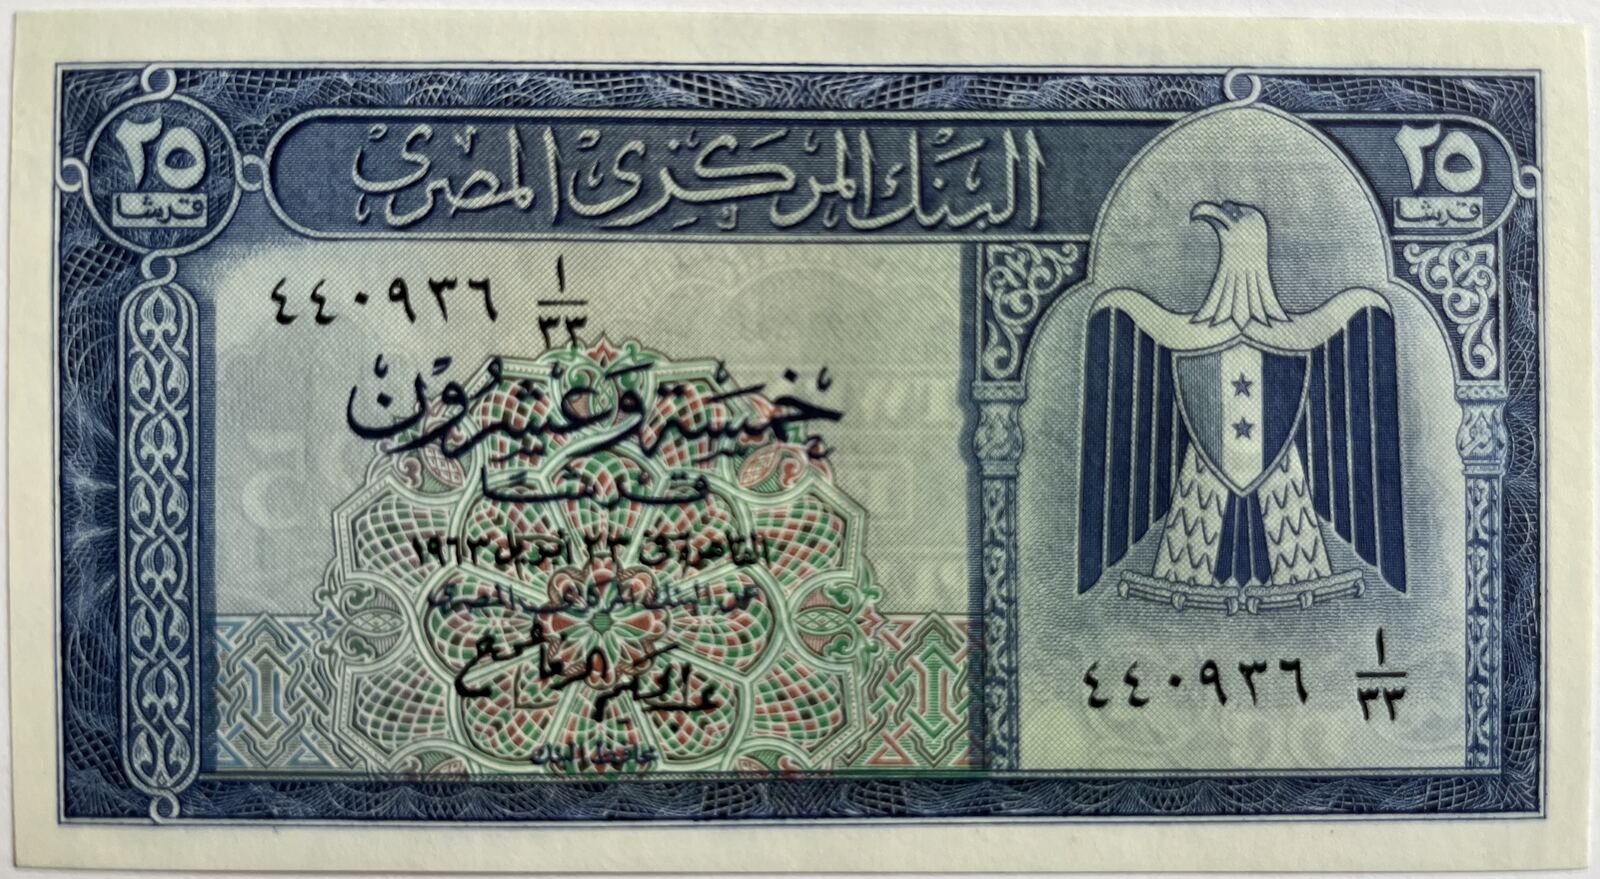 البنك المركزى المصرى
٢٥
قرشا
٢٥
قرشا
٤٤٠٩٣٦ ١/٣٣
خمسة وعشرون
قرشا
القاهرة فى ٢٣ ابريل ١٩٦٣
عن البنك المركزى المصرى
محافظ البنك
٤٤٠٩٣٦ ١/٣٣